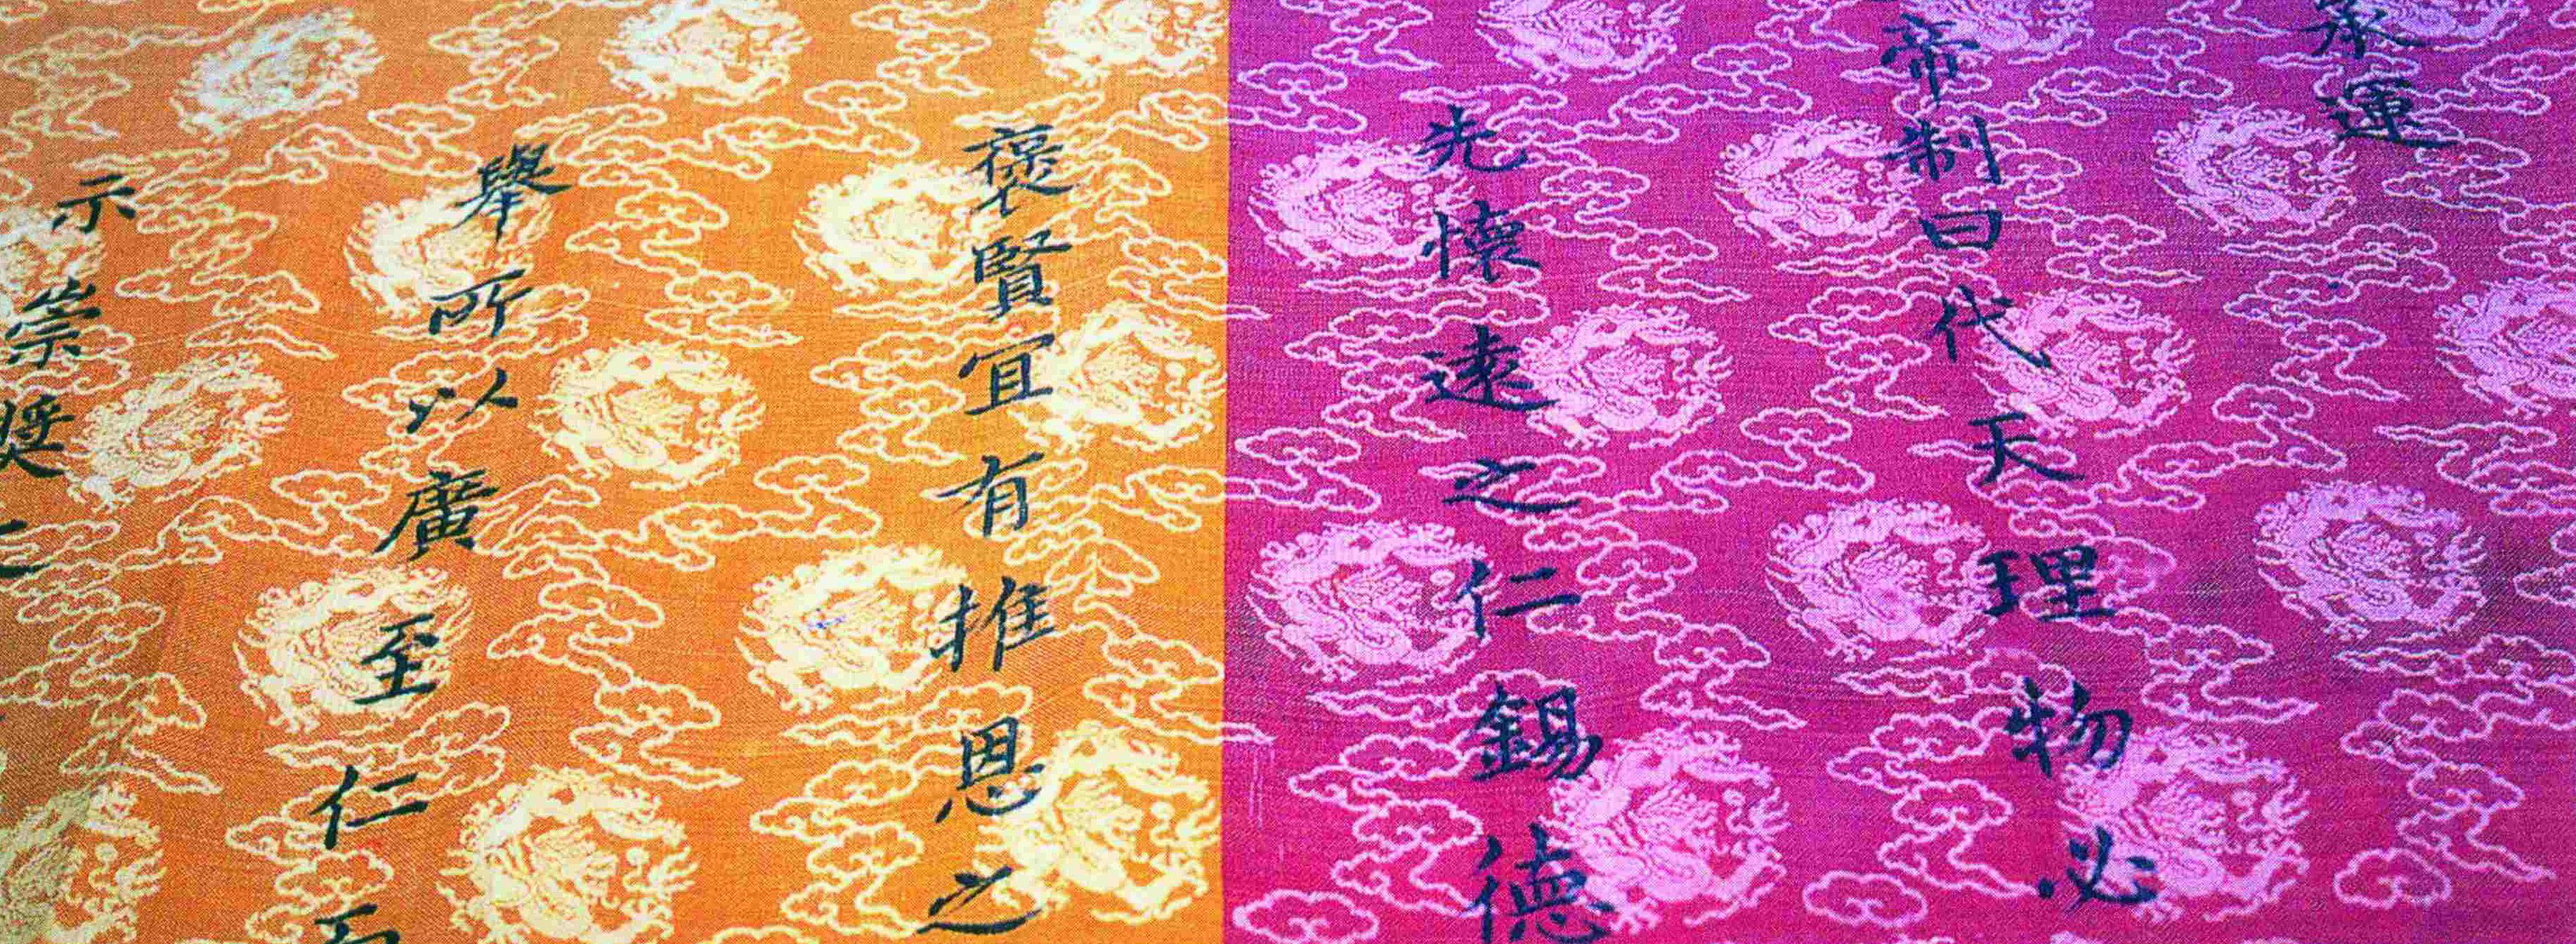 承運
帝制曰代天理物必
先懷遠之仁錫德
褒賢宜有推恩之
舉所以廣至仁而
示崇獎之